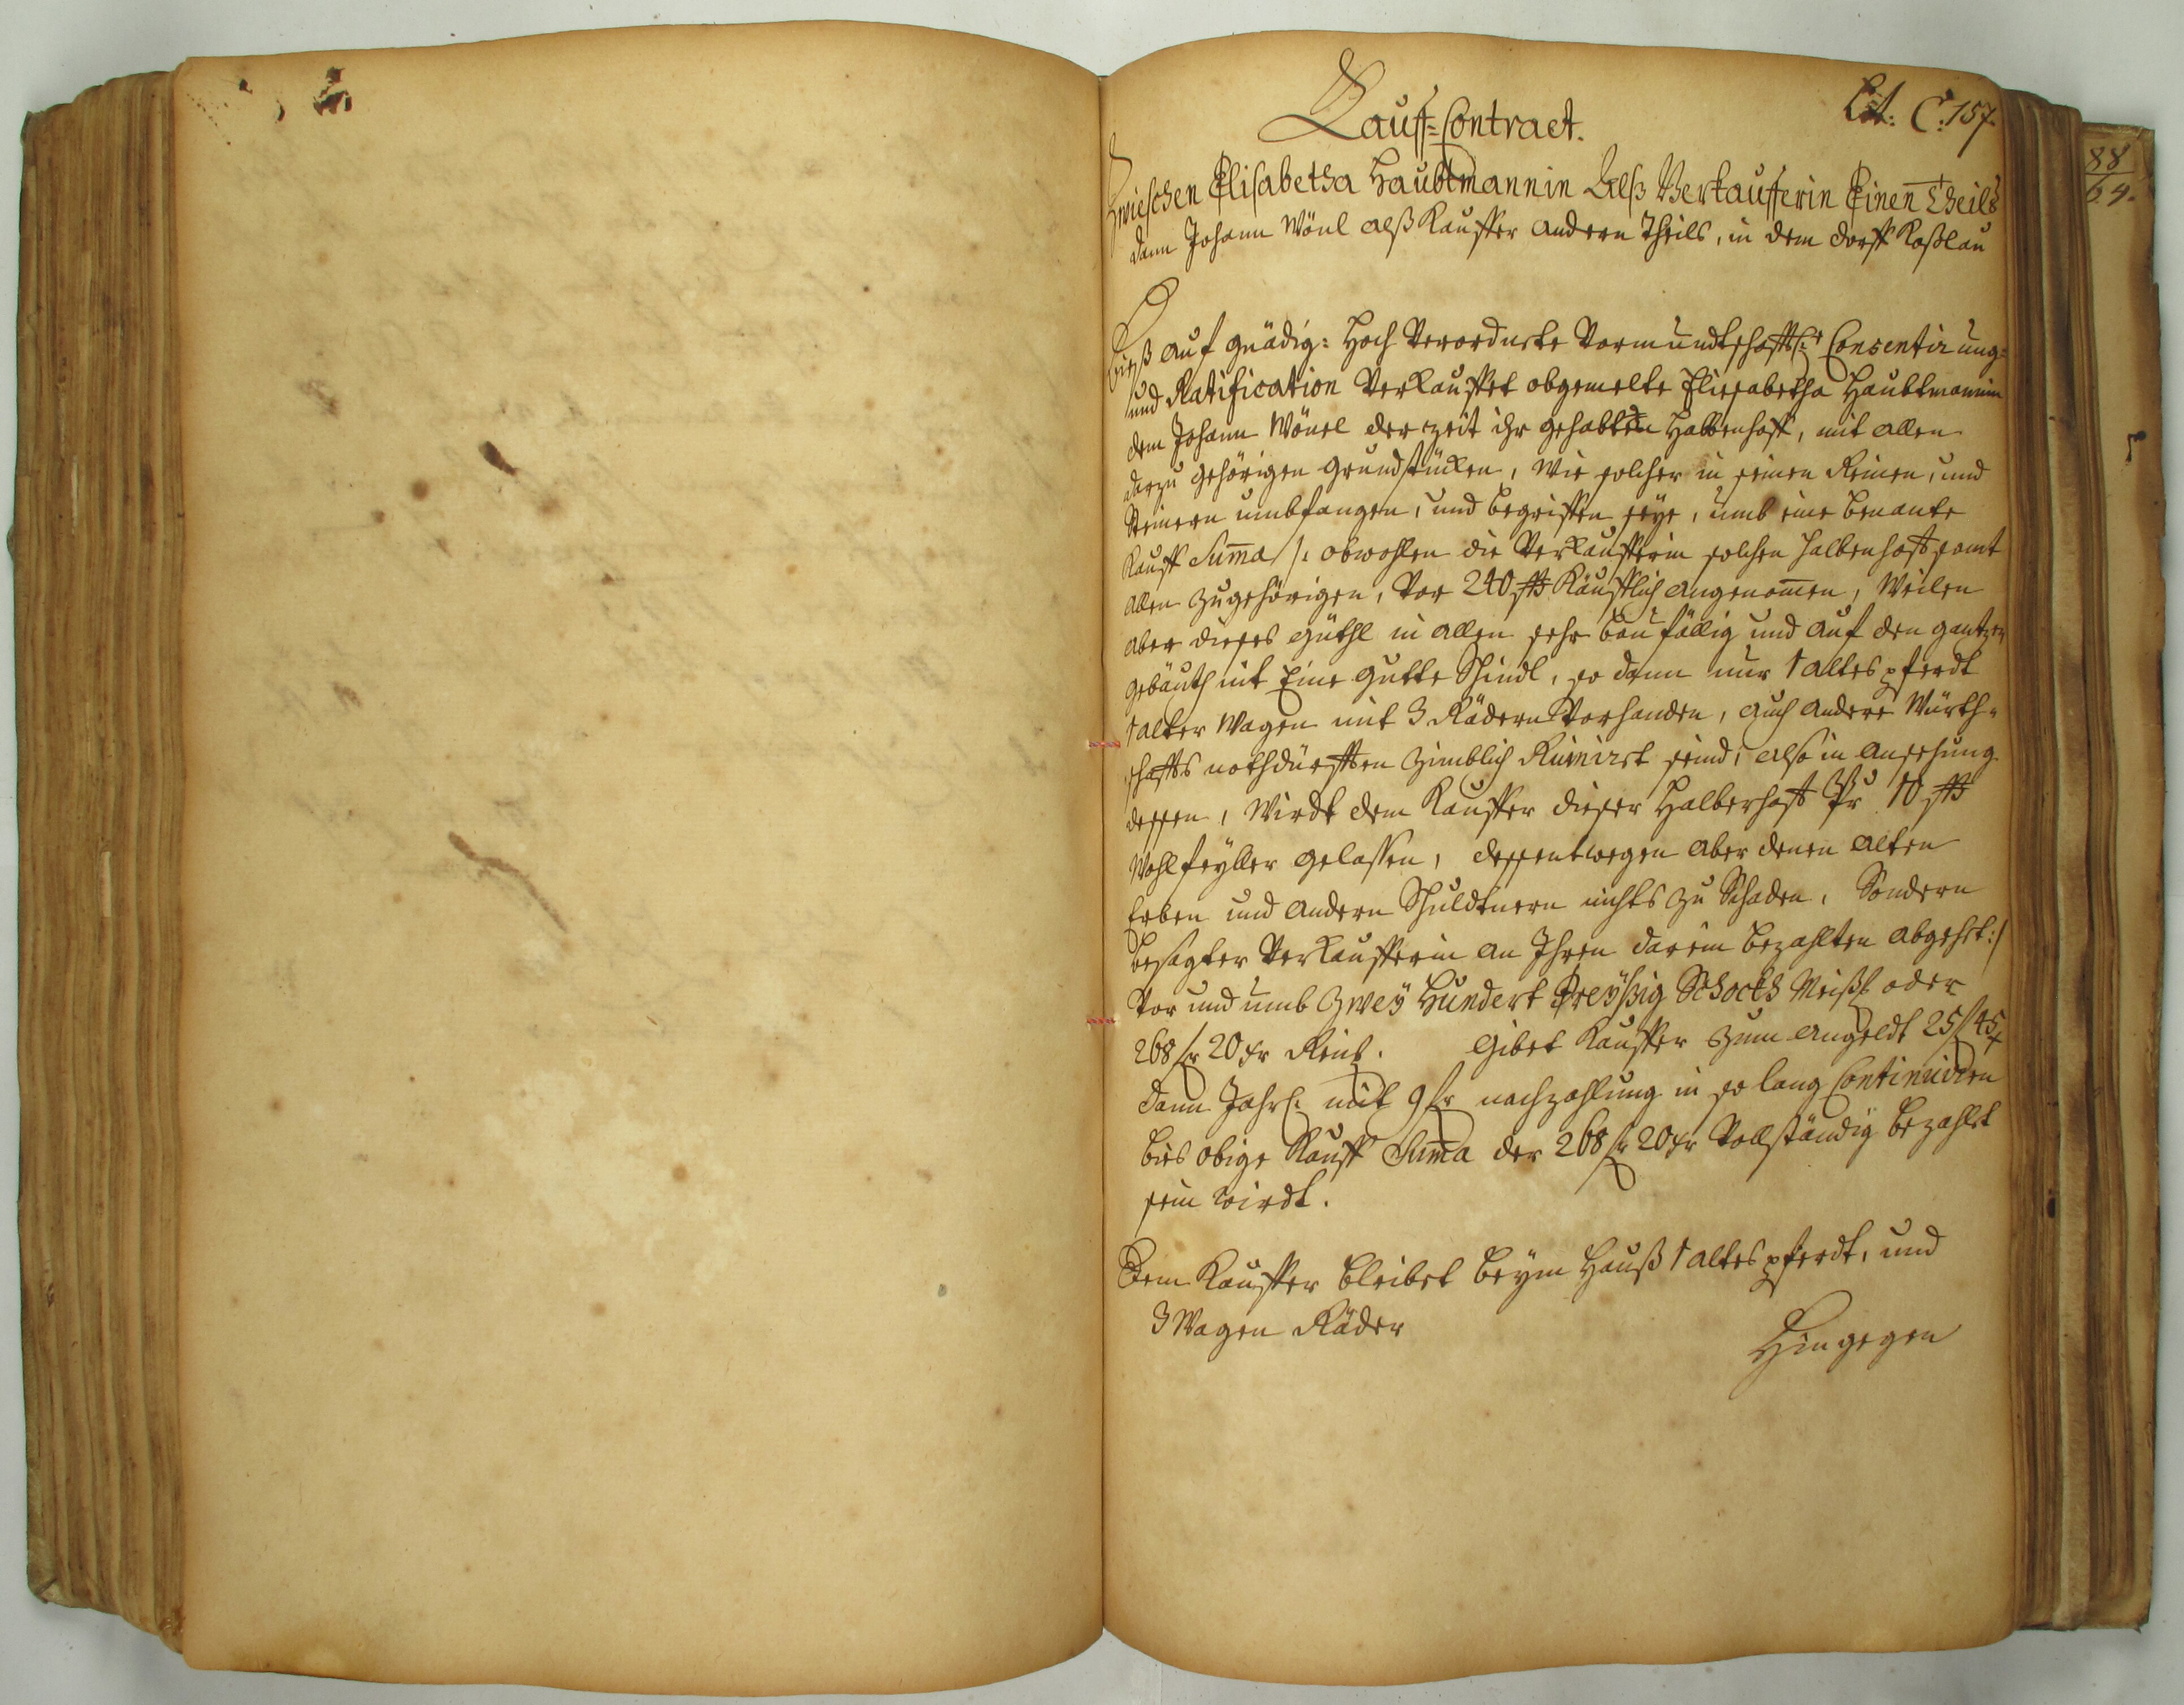 Lit: C: 157.
Kauff-Contract.
Zwieschen Elisabetha Haubtmannin Alß Verkaufferin Einen Theils
dann Johann Wönl alß Kauffer andern Theils, in dem dorff Koßlau
Dieß auf gnädig: Hoch Verordnete Vormundtschafftl: Consentirung-
und Ratification Verkauffet obgemelte Eliesabetha Haubtmannin
dem Johann Wönel der zeit ihr gehabten Halbenhoff, mit allen
darzu gehörigen grundstüken, Wie solcher in seinen Reinen, und
Steinern umbfangen, und begriffen seye, umb eine benante
Kauff Suma /: obwohlen die Verkaufferin solchen halbenhoff samt
allen zugehörigen, Vor 240 ßß Käufflich angenomen, Weilen
aber dieses güthl in allen sehr baufällig und auf den gantzen
gebäuth nit Eine gutte Schindl, so dann nur 1 altes pferdt
1 alter Wagen mit 3 Rädern Vorhanden, auch andere Würth-
schaffts nothdürfften zimblich Ruinirt seind, also in ansehung
dessen, Wirdt dem Kauffer dieser Halberhoff Pr 10 ßß
Wohlfeyller gelassen, dessentwegen aber denen alten
Erben und andern Schuldtnern nichts zu Schaden, Sondern
besagter Verkaufferin an Ihren darein bezahlten abgehet :/
Vor und umb Zwey Hundert Dreyßig Schocks Meißl oder
268 fr 20 xr Reinl. Gibet Kauffer zum angeldt 25 f 45 x
dann Jahrl: mit 9 fr nachzahlung in so lang Continuiren
bies obige Kauff Suma der 268 fr 20 xr Vollständig bezahlt
sein wirdt.
Dem Kauffer bleibet beym Hauß 1 altes pferdt, und
3 Wagen Räder
Hingegen
88
64.